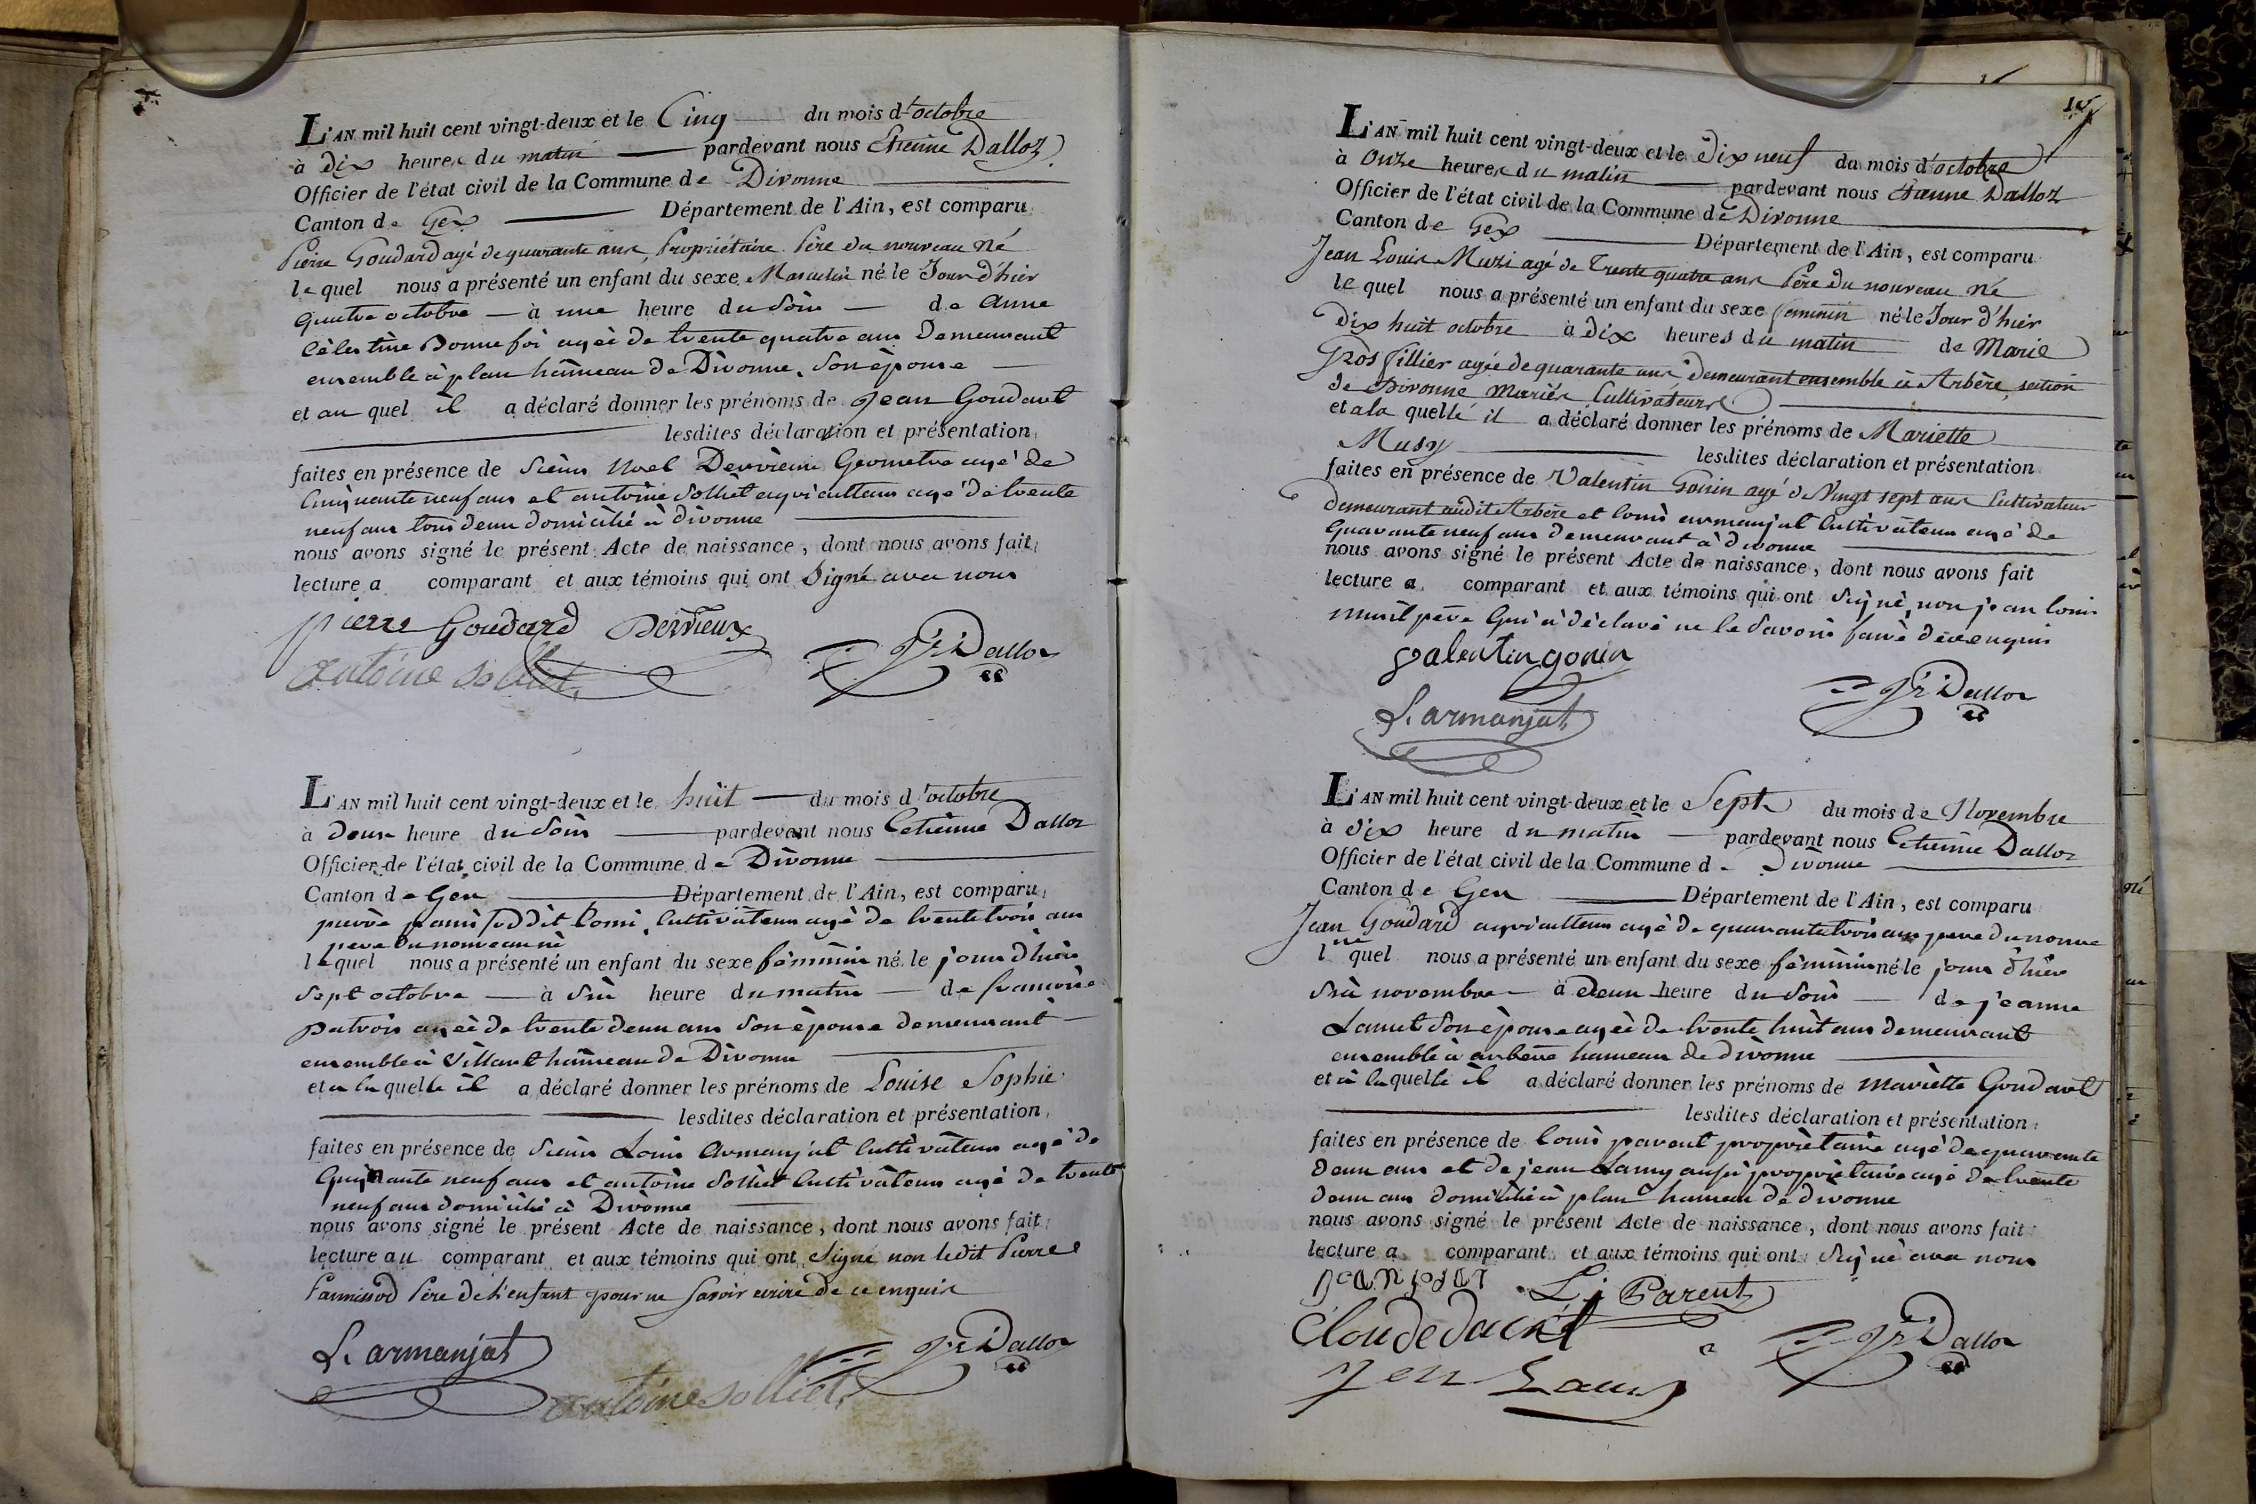 L'AN mil huit cent vingt-deux et le Cinq du mois d'octobre
à dix heures du matin pardevant nous Etienne Dalloz
Officier de l'état civil de la Commune de Divonne
Canton de Gex Département de l'Ain, est comparu
Pierre Goudard agé de quarante ans, Propriétaire Père du nouveau né
lequel nous a présenté un enfant du sexe Masculin né le Jour d'hier
quatre octobre à une heure du soir de Anne
Célestine Bonnefoi agée de trente quatre ans Demeurant
ensemble à plan hâmeau de Divonne, son épouse
et au quel il a déclaré donner les prénoms de Jean Goudard
lesdites déclaration et présentation
faites en présence de Sieur Noel Derrieux Géometre agé de
Cinquante neuf ans et antoine Solliet agriculteur agé de trente
neuf ans tous deux domicilié à divonne
nous avons signé le présent Acte de naissance, dont nous avons fait
lecture a comparant et aux témoins qui ont Signé avec nous
pierre Goudard Derrieux
antoine solliet Dalloz
L'AN mil huit cent vingt-deux et le huit du mois d'octobre
à deux heure du soir pardevant nous Etienne Dalloz
Officier de l'état civil de la Commune de Divonne
Canton de Gex Département de l'Ain, est comparu
cultivateur agé de trente trois ans
pere du nouveau né
lequel nous a présenté un enfant du sexe féminin né le jour d'hier
sept octobre à six heure du matin de francoise
patrois agée de trente deux ans son épouse demeurant
ensemble à Villard hâmeau de Divonne
et a laquelle il a déclaré donner les prénoms de Louise Sophie
lesdites déclaration et présentation
faites en présence de Sieur Louis Armanjat cultivateur agé de
quarante neuf ans et antoine Solliet cultivateur agé de trente
neuf ans domicilié à Divonne
nous avons signé le présent Acte de naissance, dont nous avons fait
lecture au comparant et aux témoins qui ont Signé non ledit Pierre
Pannissod Père de l'enfant pour ne savoir ecrire de ce enquis
L. armanjat
antoine solliet Dalloz
L'AN mil huit cent vingt-deux et le dix neuf du mois d'octobre
à onze heures du matin pardevant nous Etienne Dalloz
Officier de l'état civil de la Commune de Divonne
Canton de Gex Département de l'Ain, est comparu
Jean Louis Muzi agé de Trente quatre ans Père du nouveau né
lequel nous a présenté un enfant du sexe feminin né le Jour d'hier
Dix huit octobre à dix heures du matin de Marie
Gros fillier agée de quarante ans demeurant ensemble à Arbère, section
de Divonne Mariés Cultivateurs
et a la quelle il a déclaré donner les prénoms de Mariette
Musy lesdites déclaration et présentation
faites en présence de Valentin Gonin agé de Vingt sept ans Cultivateur
demeurant audit Arbère et louis armanjat cultivateur agé de
quarante neuf ans demeurant à divonne
nous avons signé le présent Acte de naissance, dont nous avons fait
lecture a comparant et aux témoins qui ont signé, non jean louis
musil père qui à déclaré ne le savoir faire de ce enquis
valentin gonin
L. armanjat Dalloz
L'AN mil huit cent vingt-deux et le Sept du mois de Novembre
à dix heure du matin pardevant nous Etienne Dalloz
Officier de l'état civil de la Commune de Divonne
Canton de Gex Département de l'Ain, est comparu
Jean Goudard agriculteur agé de quarante trois ans pere du nouveau
né
lequel nous a présenté un enfant du sexe féminin né le jour d'hier
six novembre à deux heure du soir de jeanne
Lamet son épouse agée de trente huit ans demeurant
ensemble à arbère hameau de divonne
et à laquelle il a déclaré donner les prénoms de mariette Goudard
lesdites déclaration et présentation
faites en présence de louis parent propriétaire agé de quarante
deux ans et de jean Lamy aussi propriétaire agé de trente
deux ans domicilié à plan hameau de divonne
nous avons signé le présent Acte de naissance, dont nous avons fait
lecture a comparant et aux témoins qui ont signé avec nous
L. Parent
Dalloz